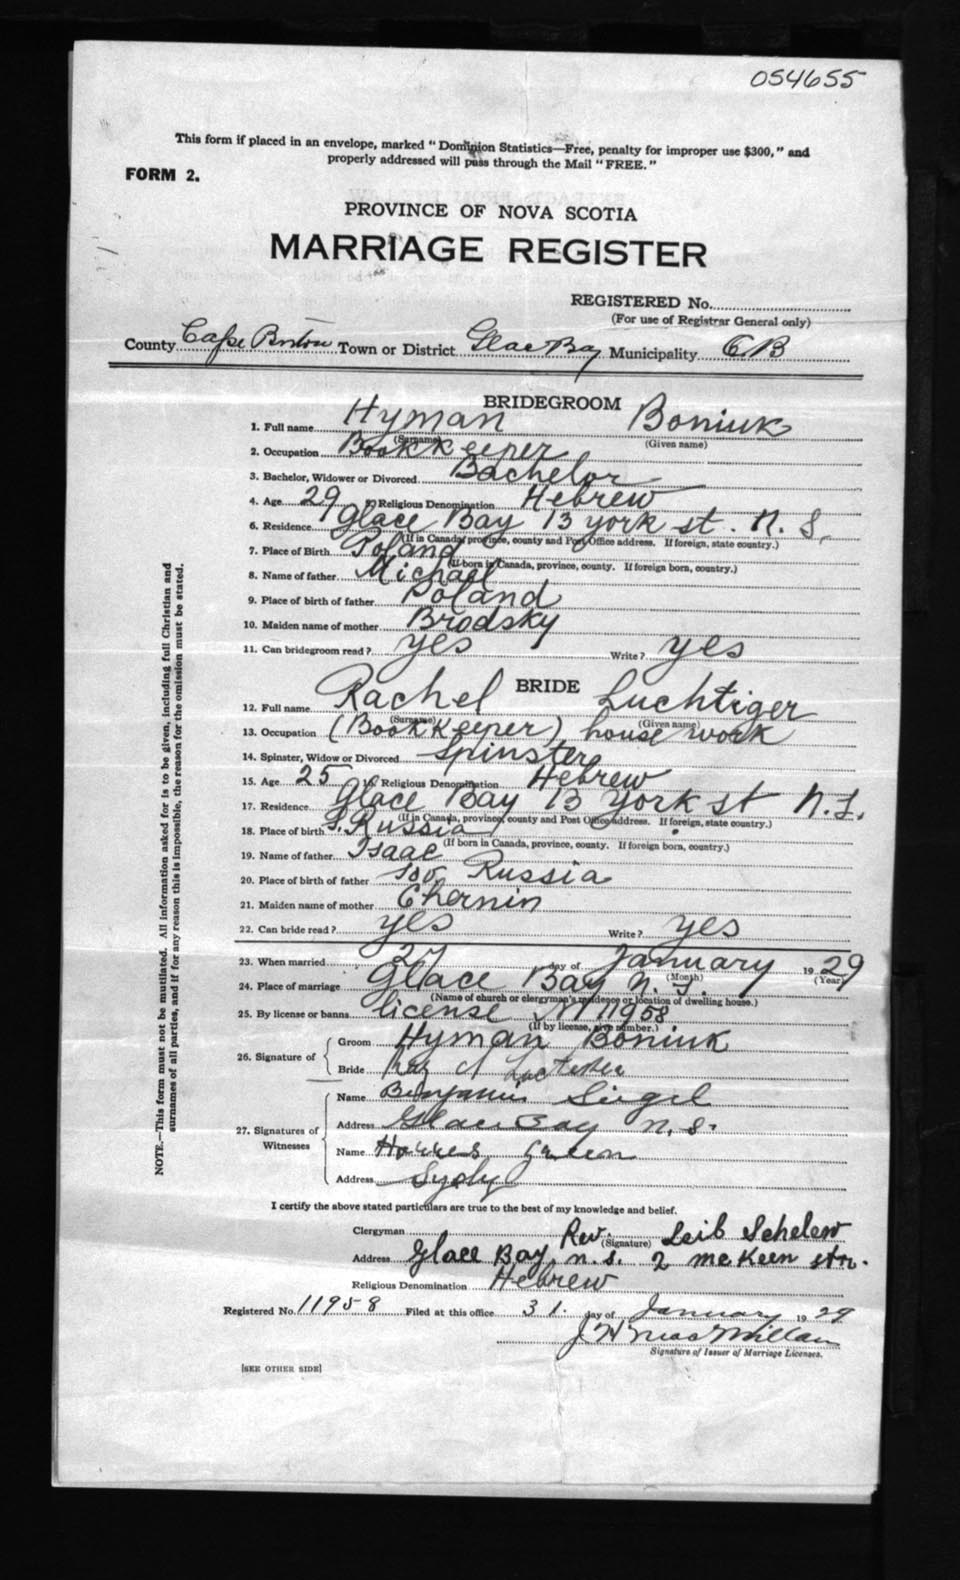 054655
This form if placed in an envelope, marked "Dominion Statistics—Free, penalty for improper use $300," and
properly addressed will pass through the Mail "FREE."
FORM 2.
PROVINCE OF NOVA SCOTIA
MARRIAGE REGISTER
REGISTERED No.
(For use of Registrar General only)
County Cape Breton Town or District Glace Bay Municipality C B
BRIDEGROOM
1. Full name Hyman Boniuk
(Surname) (Given name)
2. Occupation Bookkeeper
3. Bachelor, Widower or Divorced Bachelor
4. Age 29 5. Religious Denomination Hebrew
6. Residence Glace Bay 13 york st. N. S.
(If in Canada, province, county and Post Office address. If foreign, state country.)
7. Place of Birth Poland
(If born in Canada, province, county. If foreign born, country.)
8. Name of father Michael
9. Place of birth of father Poland
10. Maiden name of mother Brodsky
11. Can bridegroom read? yes Write? yes
BRIDE
12. Full name Rachel Luchtiger
(Surname) (Given name)
13. Occupation (Bookkeeper) house work
14. Spinster, Widow or Divorced Spinster
15. Age 25 16. Religious Denomination Hebrew
17. Residence Glace Bay 13 York st N.S.
(If in Canada, province, county and Post Office address. If foreign, state country.)
18. Place of birth S. Russia
(If born in Canada, province, county. If foreign born, country.)
19. Name of father Isaac
20. Place of birth of father Russia
21. Maiden name of mother Chernin
22. Can bride read? yes Write? yes
23. When married 27 day of January 1929
(Month) (Year)
24. Place of marriage Glace Bay N. S.
(Name of church or clergyman's residence or location of dwelling house.)
25. By license or banns license N 11958
(If by license, give number.)
26. Signature of
Groom Hyman Boniuk
Bride
27. Signatures of Witnesses
Name Benjamin Siegel
Address Glace Bay N. S.
Name Green
Address Sydy
I certify the above stated particulars are true to the best of my knowledge and belief.
Clergyman Rev. Leib Schelew
(Signature)
Address Glace Bay, n.s. 2 McKeen str.
Religious Denomination Hebrew
Registered No. 11958 Filed at this office 31. day of January 1929
J H MacMillan
Signature of Issuer of Marriage Licenses.
[SEE OTHER SIDE]
NOTE.—This form must not be mutilated. All information asked for is to be given, including full Christian and
surnames of all parties, and if for any reason this is impossible, the reason for the omission must be stated.